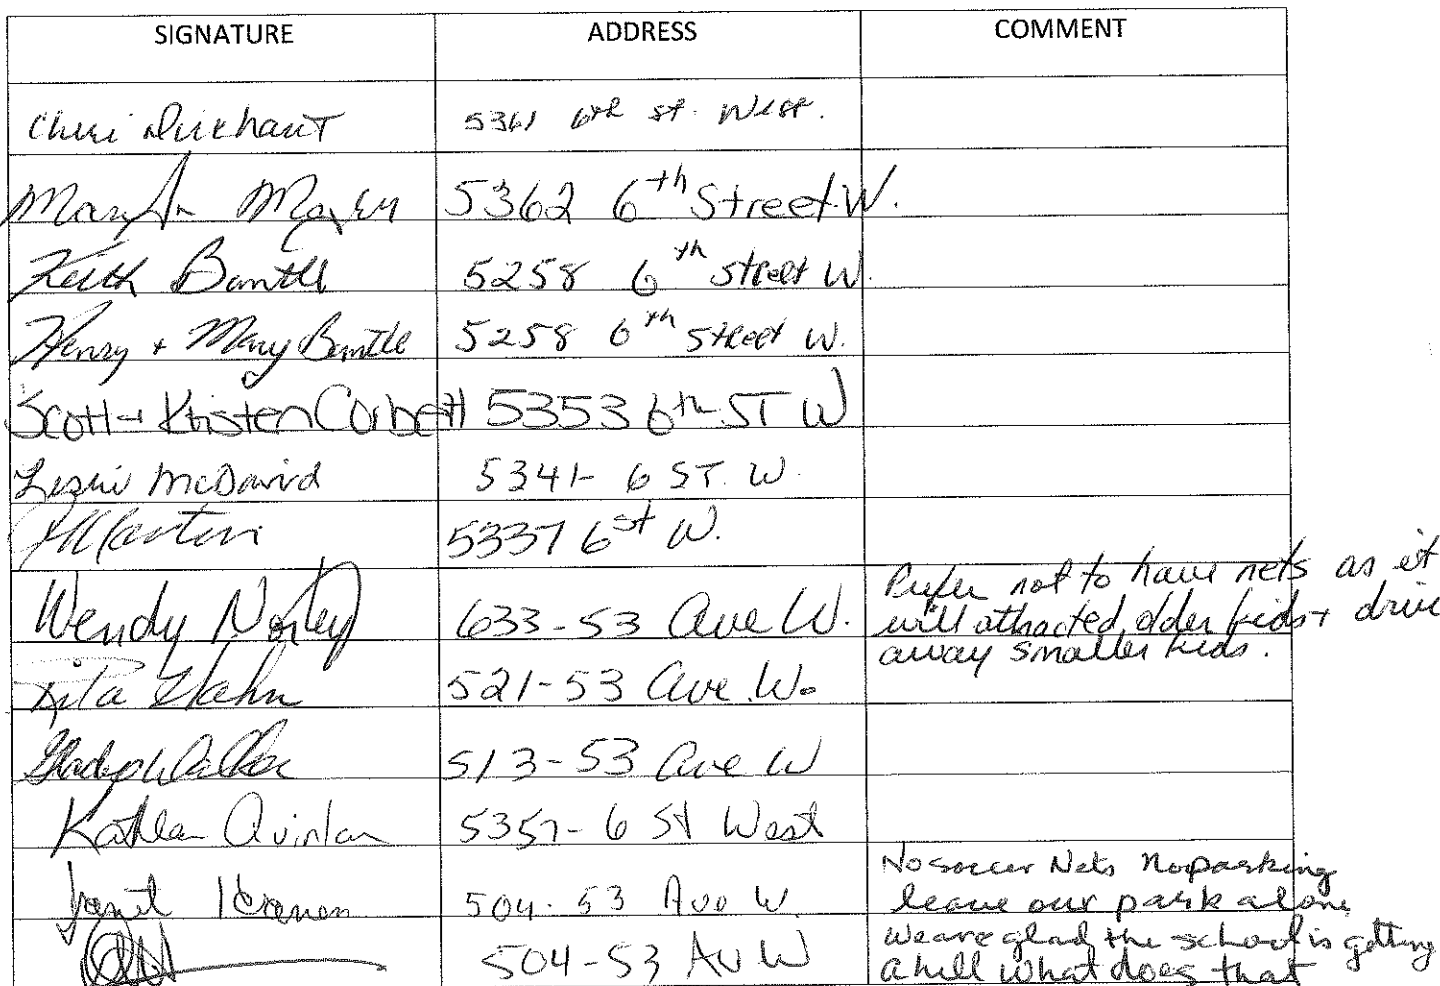 SIGNATURE ADDRESS COMMENT
Cheri 5361 6th St. West.
Mary 5362 6th Street W.
Keith Bantle 5258 6th Street W.
Henry + Mary Bantle 5258 6th Street W.
Scott + Kristen Corbett 5353 6th ST W
Leslie McDavid 5341- 6 ST. W.
5337 6 st W.
Wendy 633-53 Ave W. Prefer not to have nets as it
will attracted older kids + drive
away smaller kids.
Rita Hahn 521-53 Ave. W.
Gladys Walker 513-53 Ave W
Quinlan 5357- 6 St West
Janet 504-53 Ave W. No soccer Nets No parking
leave our park alone
504-53 Av W We are glad the school is getting
a hill what does that